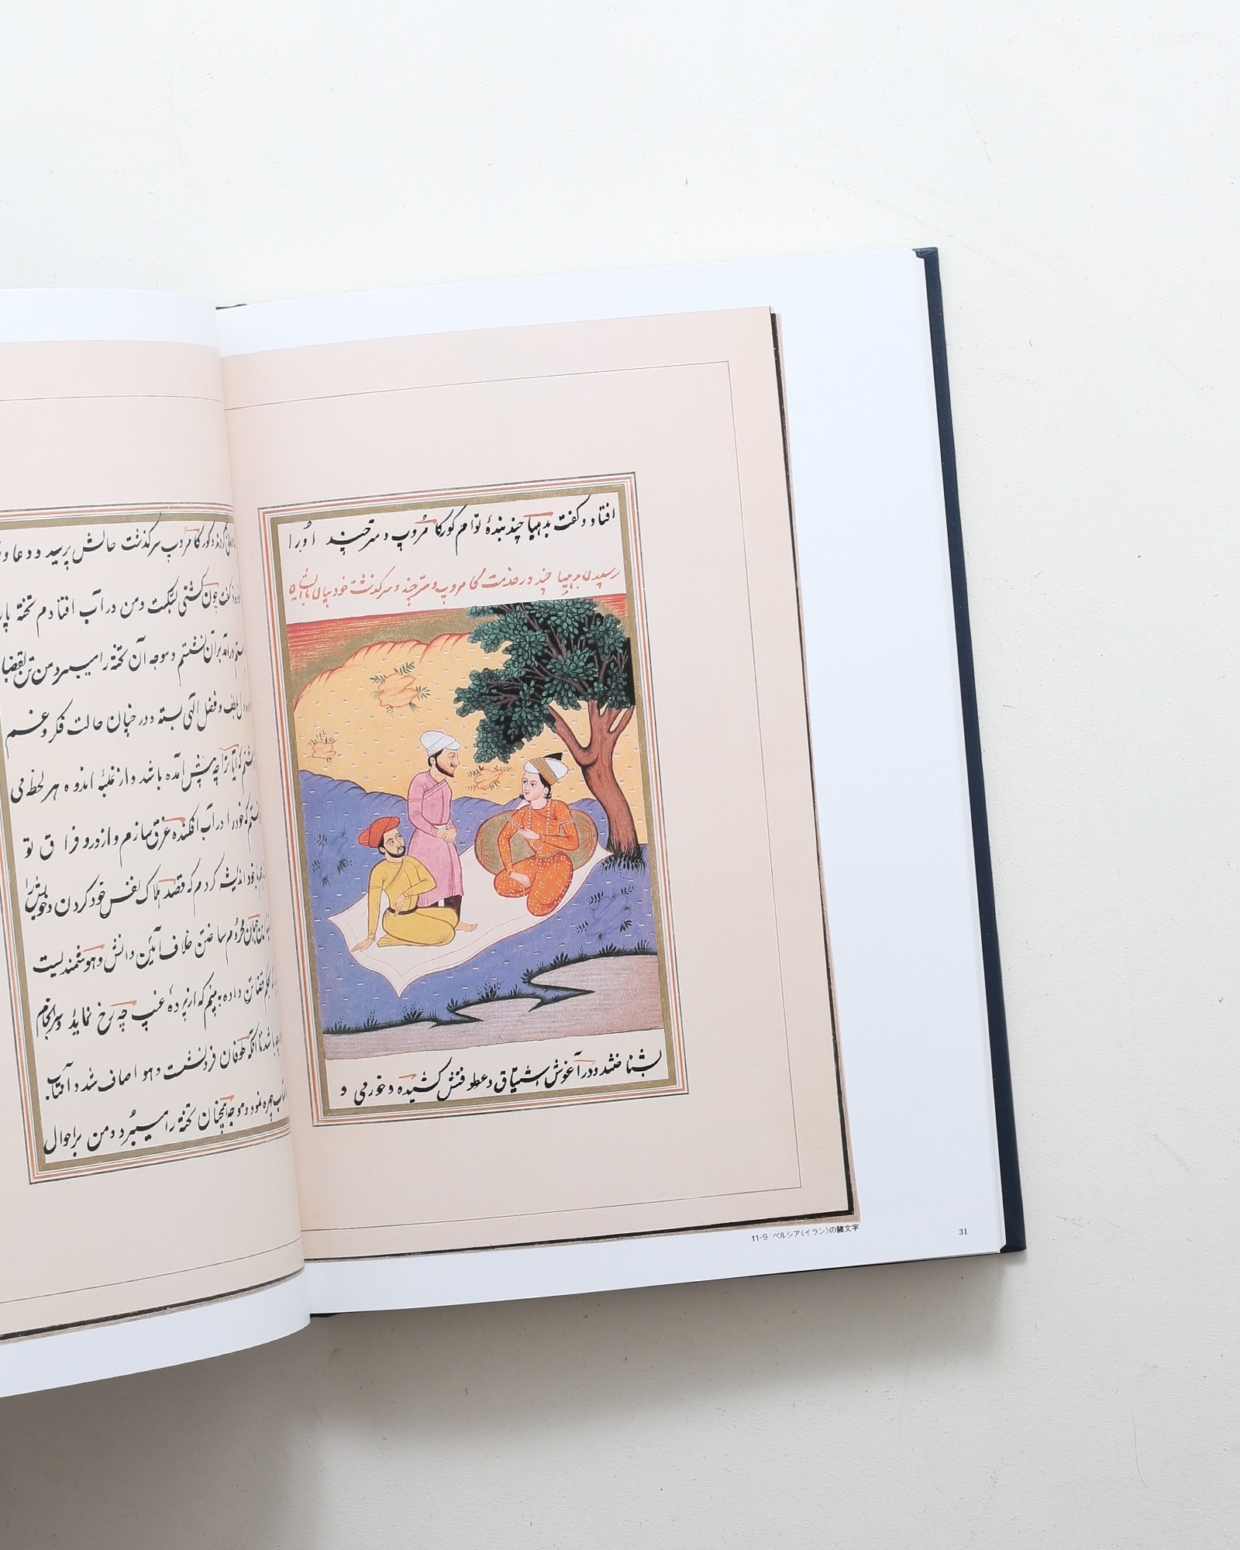 افتاد و گفت بدهیا چند بندهٔ توام کورکا مروپ و مترچند او را
رسیدن بدهیا چند در خدمت کامروپ و مترچند و سرگذشت خود بیان
بشناختند و در آغوش اشتیاق و عطوفتش کشیده و غورمی و
کورکا مروپ سرگذشت حالش پرسید و دعا و
گفت چون کشتی بشکست و من در آب افتادم تختهٔ پار
بران نشستم و موجه آن تخته را میبرد و من تن بقضا
و فضل الهی بسته و در چنان حالت فکر و غم
پیش آمده باشد و از غلبهٔ اندوه هر لحظه می
خود را در آب افکنده غرق سازم و از درد فراق تو
اندیشه کردم که قصد هلاک نفس خود کردن و خویش را
ساختن خلاف آئین دانش و هوشمندیست
داده به بینم که از پردهٔ غیب چه رخ نماید و سرانجام
باشد تا آنکه طوفان فرونشست و هوا صاف شد و آفتاب
نمود و موجه همچنان تخته را میبرد و من بر احوال
11-9 ペルシア(イラン)の諸文字
31